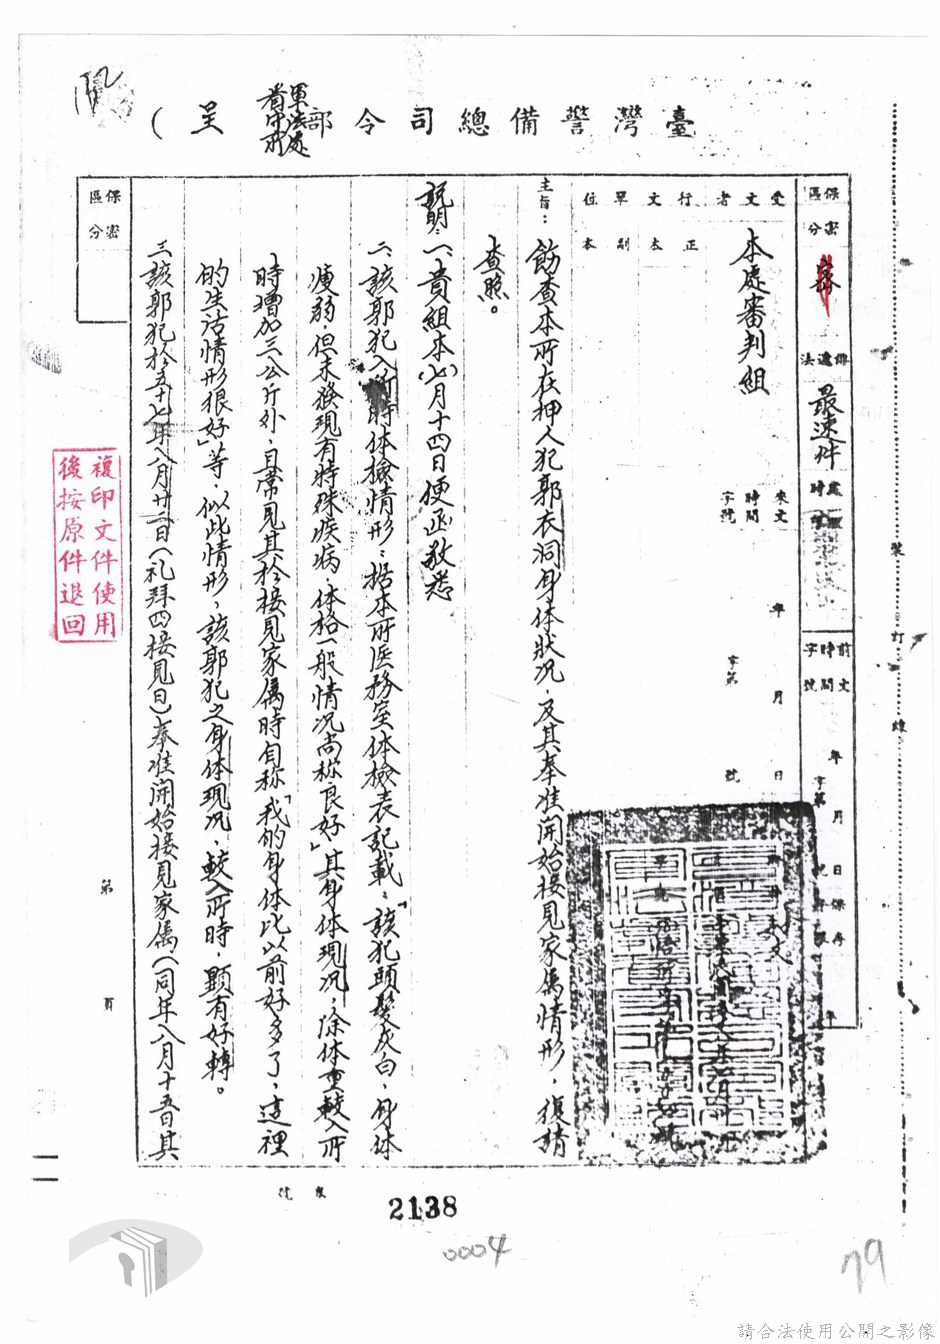 臺灣警備總司令部
軍法處
看守所
呈（
保密
區分
密
傳遞
法
最速件
處理
時
前文
時間
字號
年
月
日
字第
號
保存
年
受文者
本處審判組
來文
時間
字號
年
月
日
字第
號
行文單位
正本
副本
發文
主旨：飭查本所在押人犯郭衣洞身体狀況，及其奉准開始接見家屬情形，復請
查照。
說明：一、貴組本（七）月十四日便函敬悉
二、該郭犯入所時体檢情形：据本所医務室体檢表記載：「該犯頭髮灰白，身体
瘦弱，但未發現有特殊疾病，体格一般情况尚称良好」其身体現况，除体重較入所
時增加三公斤外，且常見其於接見家屬時自称「我的身体比以前好多了，這裡
的生活情形很好」等，似此情形，該郭犯之身体現况，較入所時，顯有好轉。
三、該郭犯於五十七年八月廿二日（礼拜四接見日）奉准開始接見家屬（同年八月十五日其
保密
區分
第
頁
裝
訂
線
複印文件使用
後按原件退回
2138
0004
79
請合法使用公開之影像